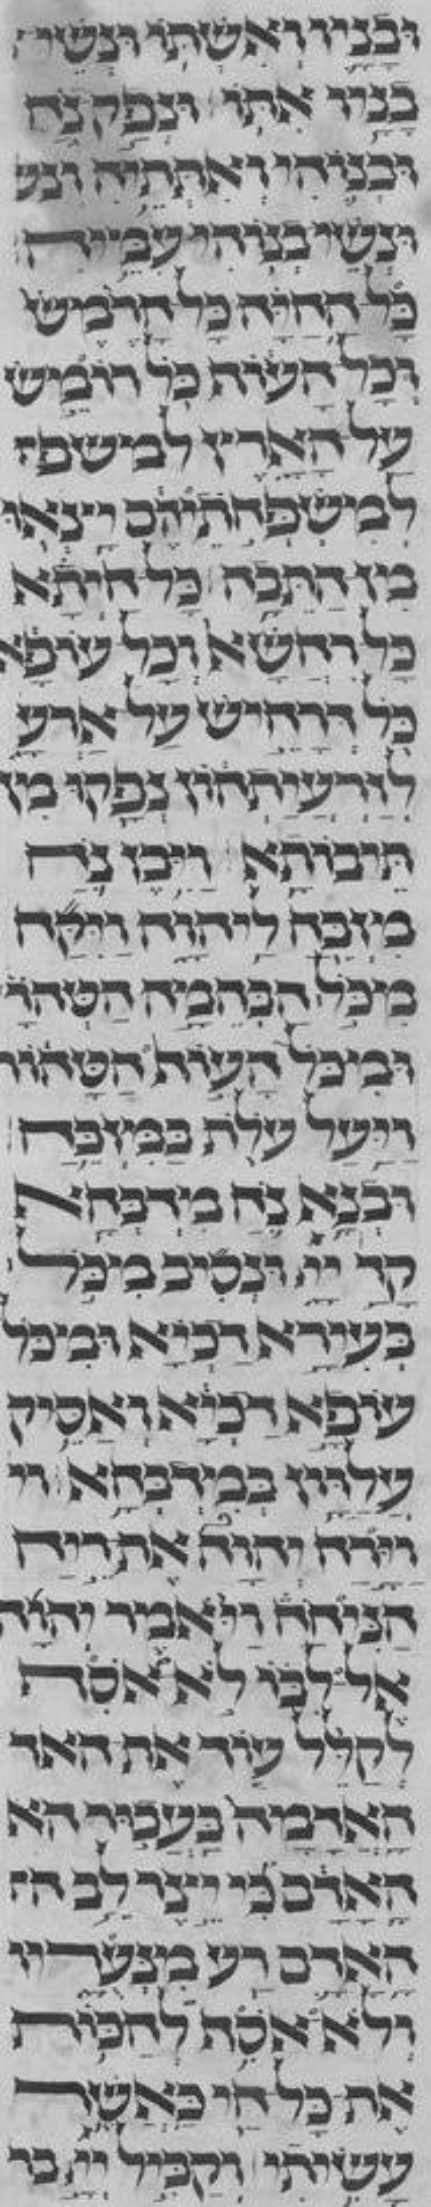 ובניו ואשתו ונשי
בניו אתו ונפק נח
ובנוהי ואתתיה ונש
ונשי בנוהי עמיה
כל החיה כל הרמש
וכל העוף כל רומש
על הארץ למשפח
למשפחתיהם יצאו
מן התבה כל חיתא
כל רחשא וכל עופא
כל דרחיש על ארעא
לזרעיתהון נפקו מן
תיבותא ויבן נח
מזבח ליהוה ויקח
מכל הבהמה הטהר
ומכל העוף הטהור
ויעל עלת במזבח
ובנא נח מדבחא
קד יי ונסיב מכל
בעירא דכיא ומכל
עופא דכיא ואסיק
עלוון במדבחא וי
וירח יהוה את ריח
הניחח ויאמר יהוה
אל לבו לא אסף
לקלל עוד את האד
האדמה בעבור הא
האדם כי יצר לב הא
האדם רע מנעריו
ולא אסף להכות
את כל חי כאשר
עשיתי וקביל יי בר